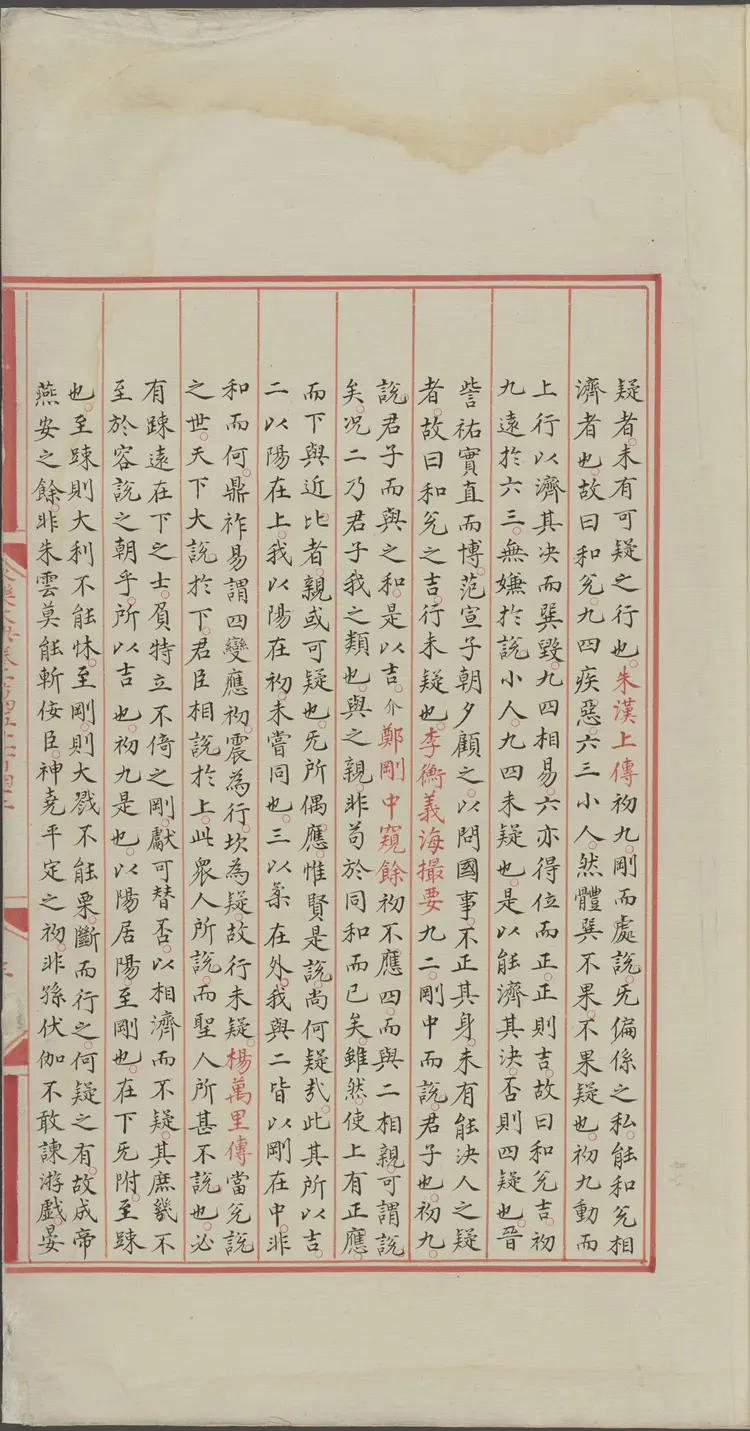 疑者未有可疑之行也朱漢上傳初九剛而處說旡偏係之私能和兌相
濟者也故曰和兌九四疾惡六三小人然體巽不果不果疑也初九動而
上行以濟其決而巽毀九四相易六亦得位而正正則吉故曰和兌吉初
九遠於六三無嫌於說小人九四未疑也是以能濟其決否則四疑也晉
訾祐實直而博范宣子朝夕顧之以問國事不正其身未有能決人之疑
者故曰和兌之吉行未疑也李衡義海撮要九二剛中而說君子也初九
說君子而與之和是以吉介鄭剛中窺餘初不應四而與二相親可謂說
矣况二乃君子我之類也與之親非苟於同和而已矣雖然使上有正應
而下與近比者親或可疑也旡所偶應惟賢是說尚何疑㢤此其所以吉
二以陽在上我以陽在初未嘗同也三以柔在外我與二皆以剛在中非
和而何鼎祚易謂四變應初震為行坎為疑故行未疑楊萬里傳當兌說
之世天下大說於下君臣相說於上此衆人所說而聖人所甚不說也必
有踈遠在下之士負特立不倚之剛獻可替否以相濟而不疑其庶幾不
至於容說之朝乎所以吉也初九是也以陽居陽至剛也在下旡附至踈
也至踈則大利不能怵至剛則大戮不能栗斷而行之何疑之有故成帝
燕安之餘非朱雲莫能斬佞臣神堯平定之初非孫伏伽不敢諫游戲晏